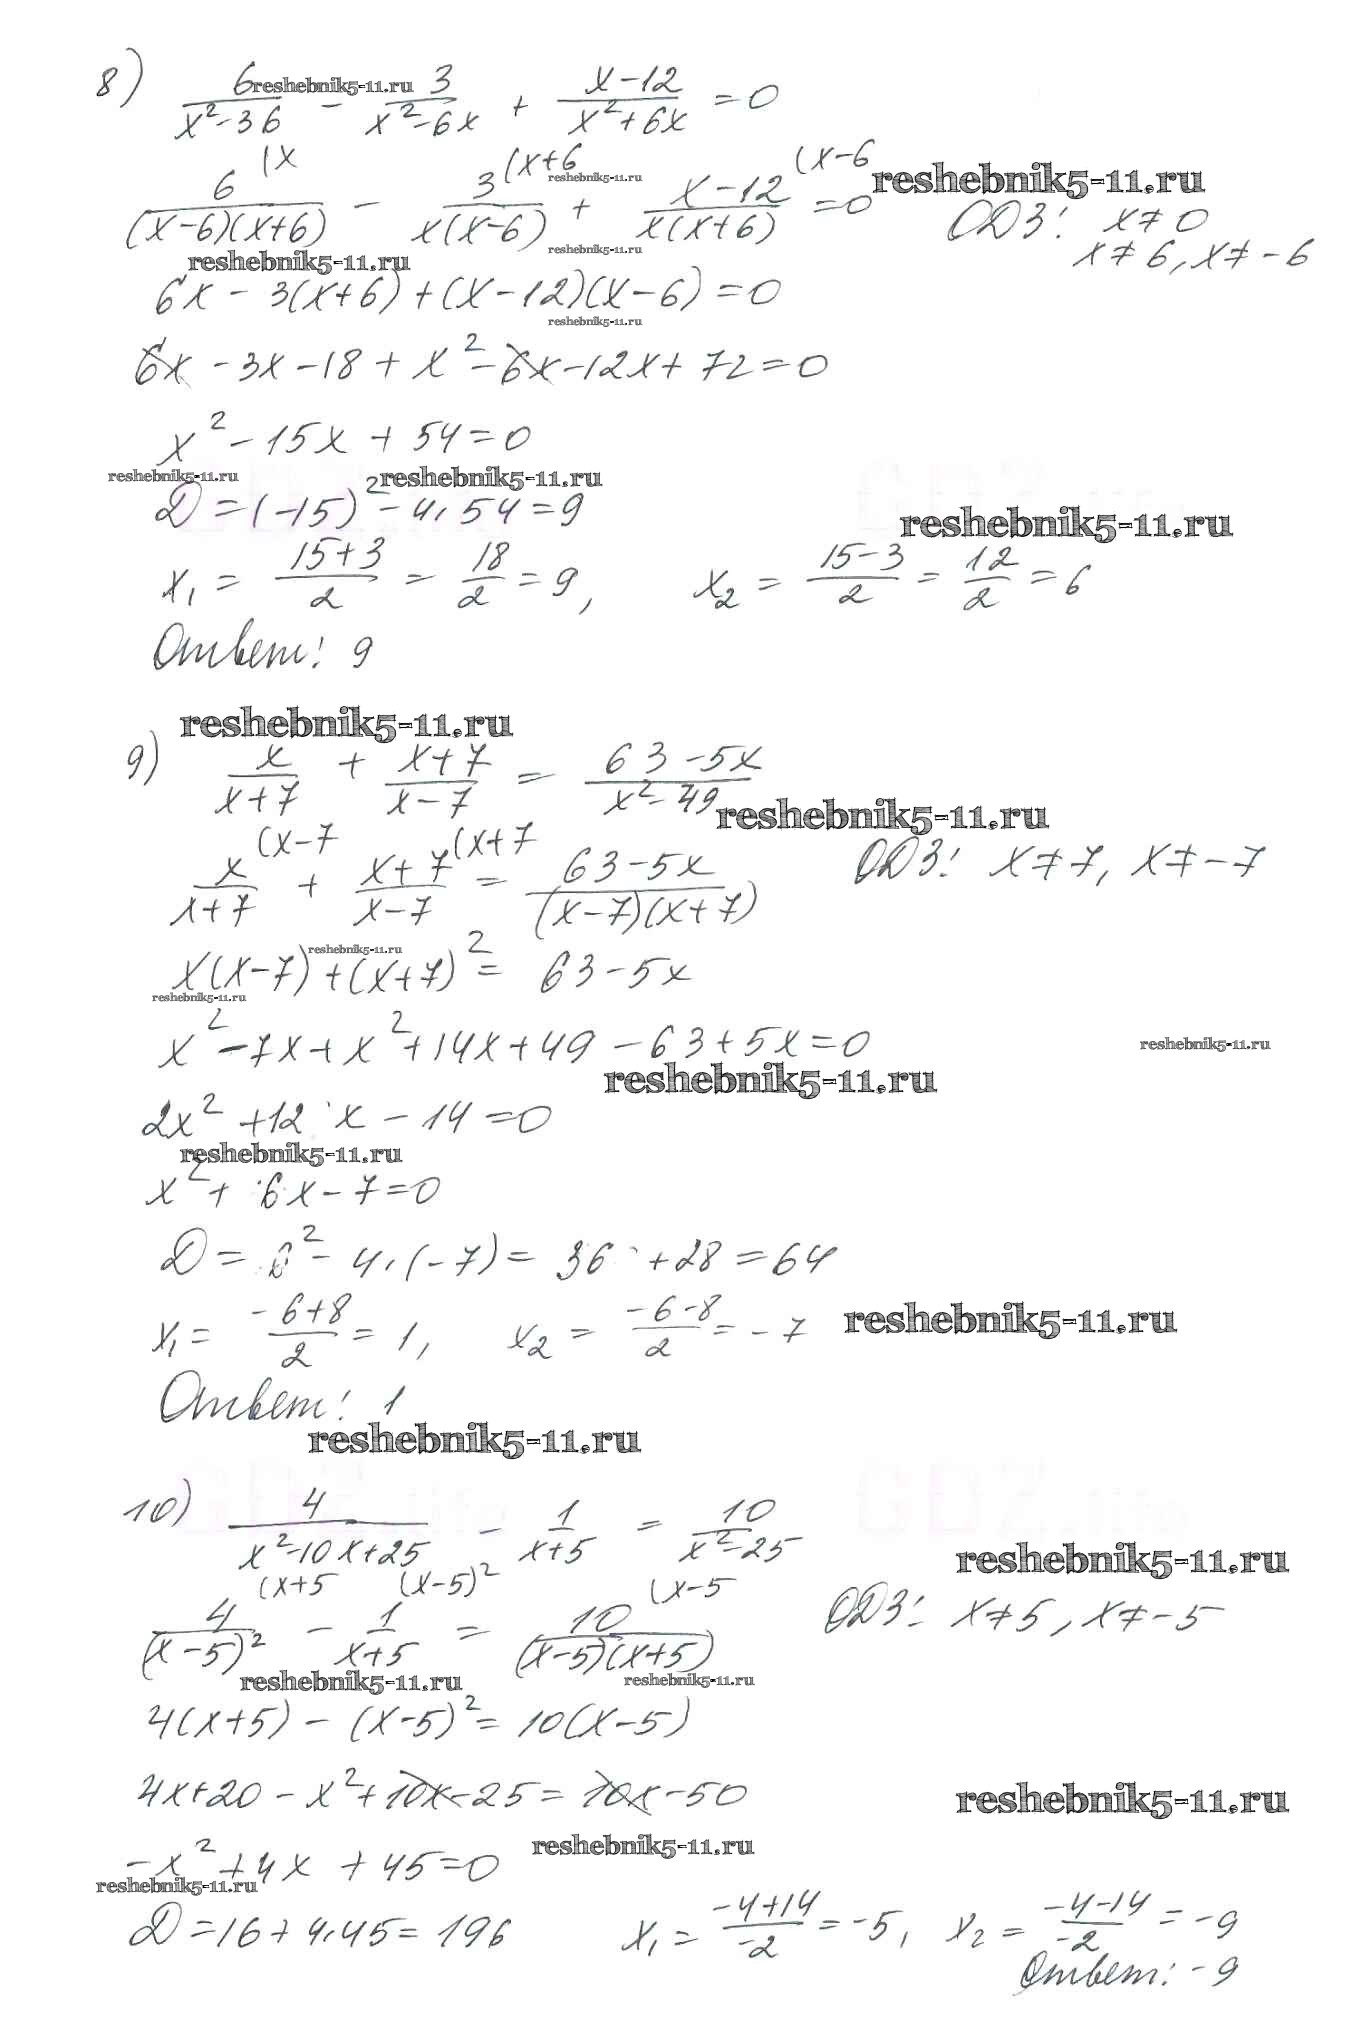 8) 6/(x²-36) - 3/(x²-6x) + (x-12)/(x²+6x) = 0
reshebnik5-11.ru
6(x/((x-6)(x+6)) - 3(x+6/(x(x-6)) + x-12(x-6/(x(x+6)) = 0
reshebnik5-11.ru
reshebnik5-11.ru
ОДЗ: x≠0
x≠6, x≠-6
reshebnik5-11.ru
reshebnik5-11.ru
6x - 3(x+6) + (x-12)(x-6) = 0
reshebnik5-11.ru
6x - 3x - 18 + x² - 6x - 12x + 72 = 0
x² - 15x + 54 = 0
reshebnik5-11.ru
reshebnik5-11.ru
D = (-15)² - 4·54 = 9
reshebnik5-11.ru
x₁ = (15+3)/2 = 18/2 = 9, x₂ = (15-3)/2 = 12/2 = 6
Ответ: 9
reshebnik5-11.ru
9) x/(x+7) + (x+7)/(x-7) = (63-5x)/(x²-49)
reshebnik5-11.ru
x(x-7/(x+7) + x+7(x+7/(x-7) = (63-5x)/((x-7)(x+7)) ОДЗ: x≠7, x≠-7
reshebnik5-11.ru
x(x-7) + (x+7)² = 63-5x
reshebnik5-11.ru
x² - 7x + x² + 14x + 49 - 63 + 5x = 0
reshebnik5-11.ru
reshebnik5-11.ru
2x² + 12x - 14 = 0
reshebnik5-11.ru
x² + 6x - 7 = 0
D = 6² - 4·(-7) = 36 + 28 = 64
x₁ = (-6+8)/2 = 1, x₂ = (-6-8)/2 = -7
reshebnik5-11.ru
Ответ: 1
reshebnik5-11.ru
GDZ.life
GDZ.life
10) 4/(x²-10x+25) - 1/(x+5) = 10/(x²-25)
reshebnik5-11.ru
4(x+5/(x-5)² - 1(x-5)²/(x+5) = 10(x-5/((x-5)(x+5)) ОДЗ: x≠5, x≠-5
reshebnik5-11.ru
reshebnik5-11.ru
4(x+5) - (x-5)² = 10(x-5)
4x+20 - x² + 10x - 25 = 10x - 50
reshebnik5-11.ru
reshebnik5-11.ru
-x² + 4x + 45 = 0
reshebnik5-11.ru
D = 16 + 4·45 = 196 x₁ = (-4+14)/-2 = -5, x₂ = (-4-14)/-2 = -9
Ответ: -9